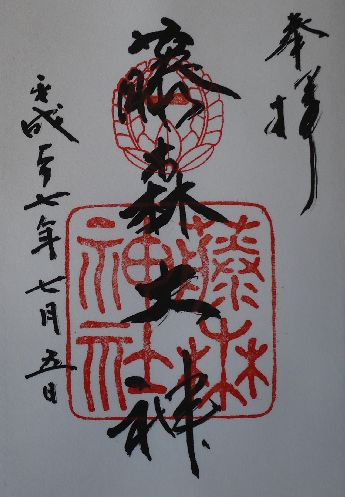 奉拝
藤森大神
藤森
神社
平成廿七年七月五日